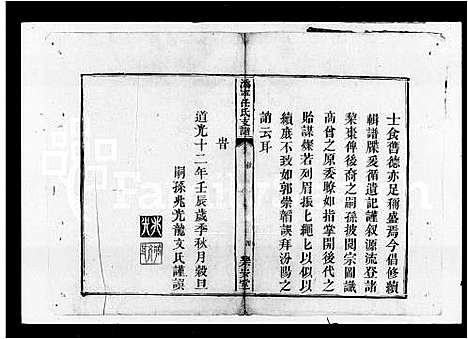 士食舊德亦足稱盛焉今倡修續
輯譜牒爰循遺記謹叙源流登諸
棃棗俾後裔之嗣孫披閱宗圖識
高曾之原委瞭如指掌開後代之
貽謀燦若列眉振上繩上以似以
續庶不致如郭崇韜誤拜汾陽之
誚云耳
旹
道光十二年壬辰歲季秋月穀旦
嗣孫兆光龍文氏謹譔
任氏支譜